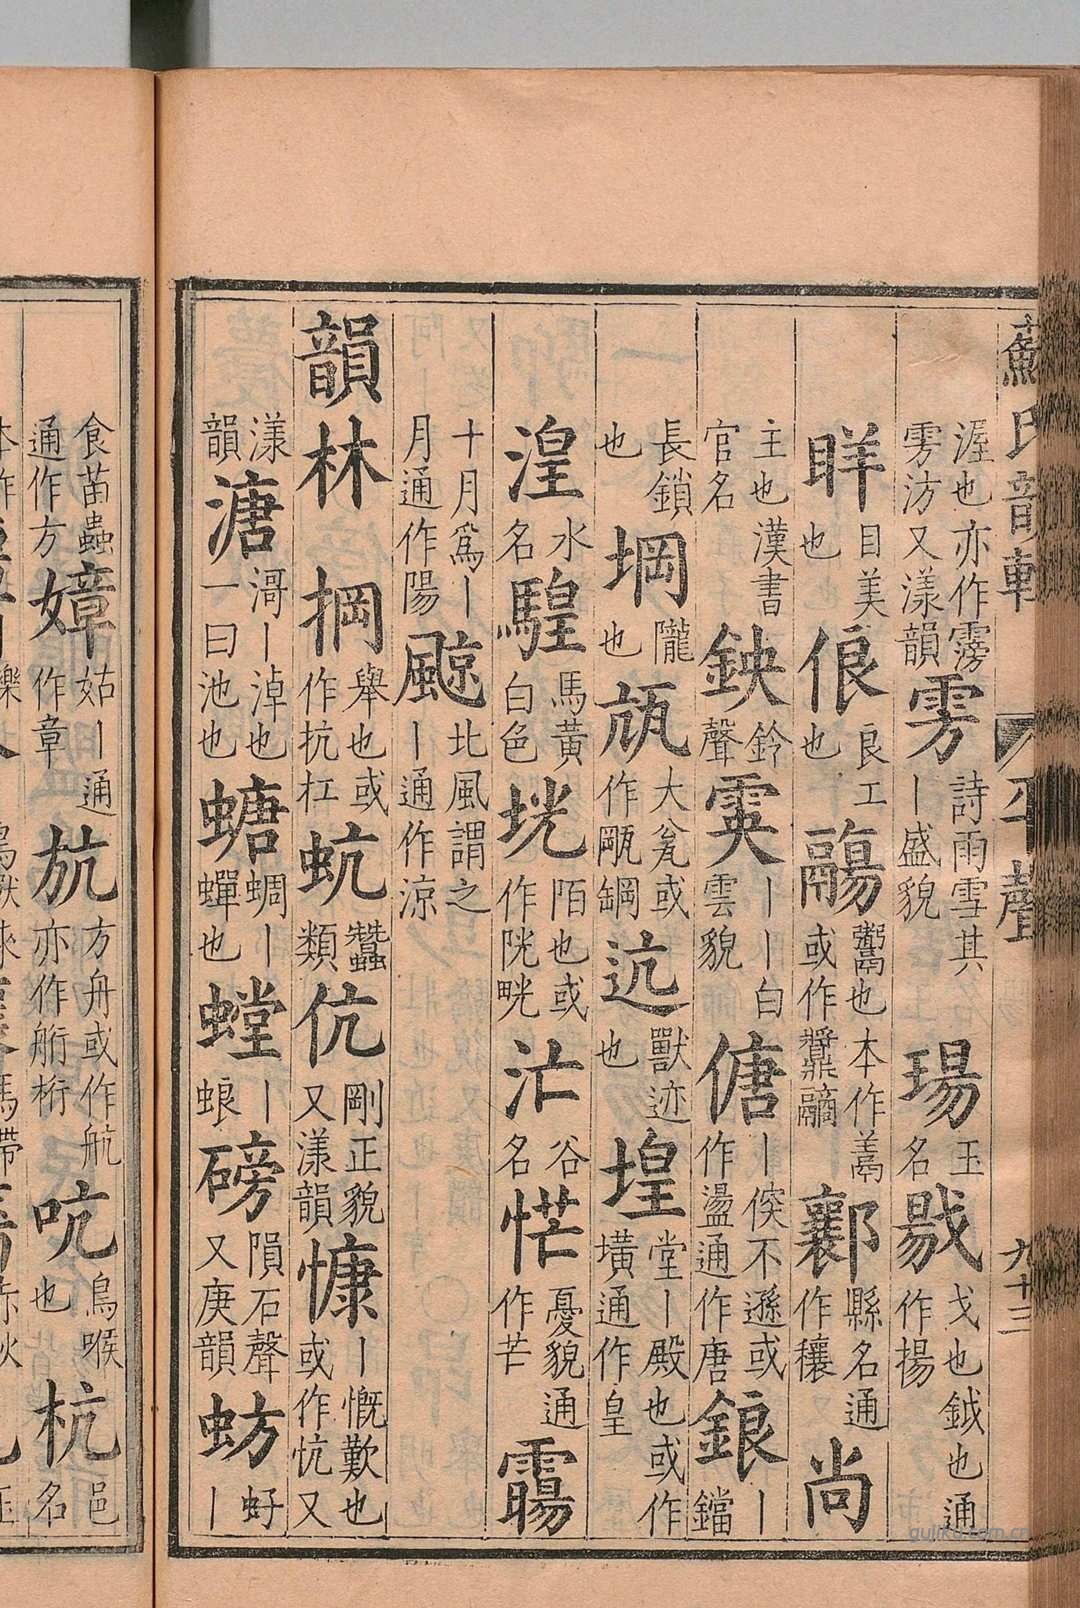 蘇氏韻輯
平聲
九十三
渥也亦作霶
雱汸又漾韻
雱
詩雨雪其
丨盛貌
瑒
玉
名
戭
戈也鉞也通
作揚
眻
目美
也
俍
良工
也
鬺
鬻也本作䰞
或作
鄴
縣名通
作穰
尚
主也漢書
官名
鉠
鈴
聲
霙
丨丨白
雲貌
傏
丨㑌不遜或
作盪通作唐
鋃
丨
鐺
長鎖
也
堈
隴
也
瓬
大瓮或
作㼚鋼
迒
獸迹
也
堭
堂丨殿也或作
㙵通作皇
湟
水
名
騜
馬黃
白色
垙
陌也或
作㫕㫛
汒
谷
名
恾
憂貌通
作芒
霷
十月爲丨
月通作陽
飉
北風謂之
丨通作涼
韻林
掆
舉也或
作抗杠
蚢
蠶
類
伉
剛正貌
又漾韻
慷
丨慨歎也
或作忼又
漾
韻
溏
滒丨淖也
一曰池也
螗
蜩丨
蟬也
螳
丨
蜋
磅
隕石聲
又庚韻
蚄
虸
丨
食苗蟲
通作方
嫜
姑丨通
作章
斻
方舟或作航
亦作䑪桁
吭
鳥喉
也
杭
邑
名
gujiku.com.cn